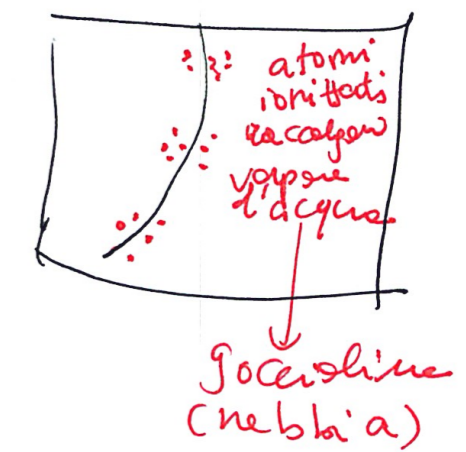 atomi
ionizzati
raccolgono
vapore
d'acqua
goccioline
(nebbia)